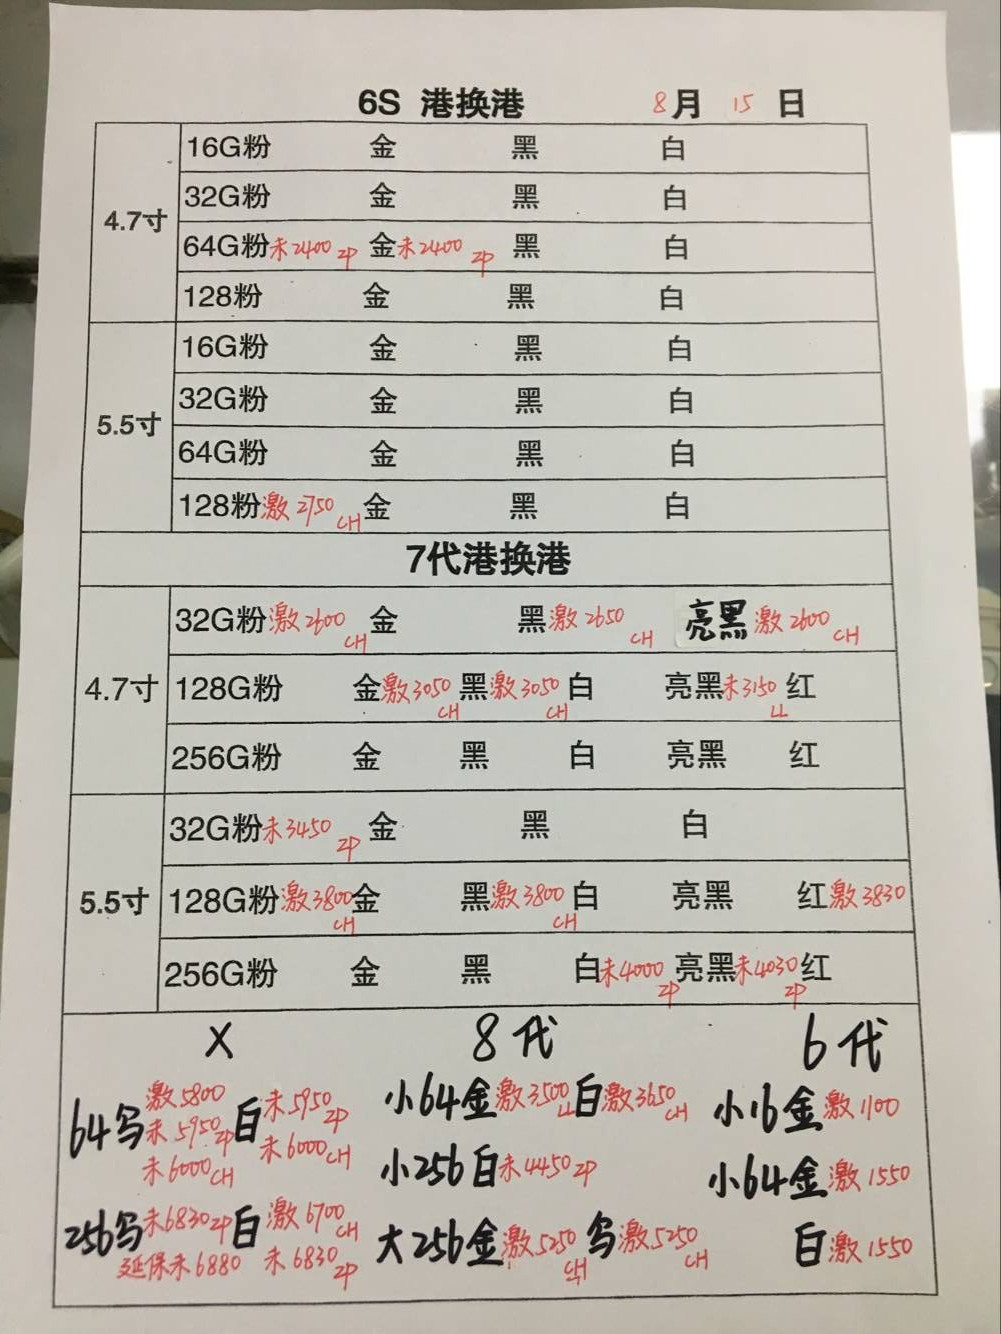 6S 港换港 8月 15 日
4.7寸
16G粉 金 黑 白
32G粉 金 黑 白
64G粉未2400 ZP 金未2400 ZP 黑 白
128粉 金 黑 白
5.5寸
16G粉 金 黑 白
32G粉 金 黑 白
64G粉 金 黑 白
128粉激2750 CH 金 黑 白
7代港换港
4.7寸
32G粉激2600 CH 金 黑激2650 CH 亮黑激2600 CH
128G粉 金激3050 CH 黑激3050 CH 白 亮黑未3150 LL 红
256G粉 金 黑 白 亮黑 红
5.5寸
32G粉未3450 ZP 金 黑 白
128G粉激3800 CH 金 黑激3800 CH 白 亮黑 红激3830
256G粉 金 黑 白未4000 ZP 亮黑未4030 ZP 红
X
64乌激5800
未5950ZP
未6000CH
白未5950ZP
未6000CH
256乌未6830ZP
延保未6880
白激6700CH
未6830ZP
8代
小64金激3500LL 白激3650CH
小256白未4450ZP
大256金激5250CH 乌激5250CH
6代
小16金激1100
小64金激1550
白激1550